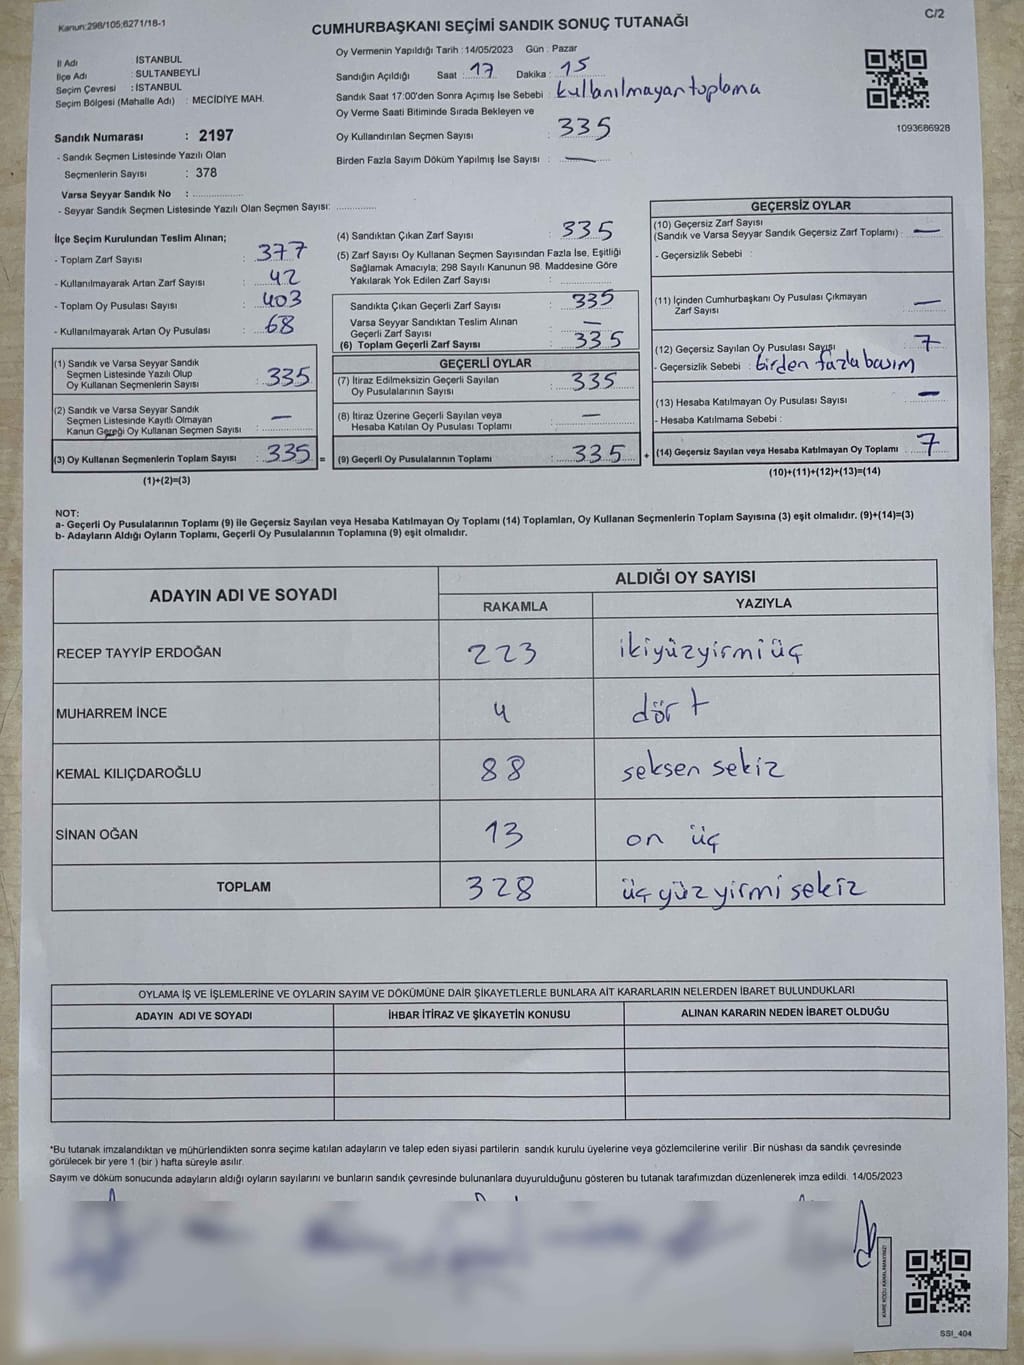 Kanun:298/105;6271/18-1
C/2
CUMHURBAŞKANI SEÇİMİ SANDIK SONUÇ TUTANAĞI
İl Adı : İSTANBUL
İlçe Adı : SULTANBEYLİ
Seçim Çevresi : İSTANBUL
Seçim Bölgesi (Mahalle Adı) : MECİDİYE MAH.
Sandık Numarası : 2197
- Sandık Seçmen Listesinde Yazılı Olan
Seçmenlerin Sayısı : 378
Varsa Seyyar Sandık No :
- Seyyar Sandık Seçmen Listesinde Yazılı Olan Seçmen Sayısı:
Oy Vermenin Yapıldığı Tarih : 14/05/2023 Gün : Pazar
Sandığın Açıldığı Saat : 17 Dakika : 15
Sandık Saat 17:00'den Sonra Açımış İse Sebebi : kullanılmayan toplama
Oy Verme Saati Bitiminde Sırada Bekleyen ve
Oy Kullandırılan Seçmen Sayısı : 335
Birden Fazla Sayım Döküm Yapılmış İse Sayısı : —
1093686928
İlçe Seçim Kurulundan Teslim Alınan;
- Toplam Zarf Sayısı : 377
- Kullanılmayarak Artan Zarf Sayısı : 42
- Toplam Oy Pusulası Sayısı : 403
- Kullanılmayarak Artan Oy Pusulası : 68
(1) Sandık ve Varsa Seyyar Sandık
Seçmen Listesinde Yazılı Olup
Oy Kullanan Seçmenlerin Sayısı : 335
(2) Sandık ve Varsa Seyyar Sandık
Seçmen Listesinde Kayıtlı Olmayan
Kanun Gereği Oy Kullanan Seçmen Sayısı : —
(3) Oy Kullanan Seçmenlerin Toplam Sayısı : 335 =
(1)+(2)=(3)
(4) Sandıktan Çıkan Zarf Sayısı : 335
(5) Zarf Sayısı Oy Kullanan Seçmen Sayısından Fazla İse, Eşitliği
Sağlamak Amacıyla; 298 Sayılı Kanunun 98. Maddesine Göre
Yakılarak Yok Edilen Zarf Sayısı :
Sandıkta Çıkan Geçerli Zarf Sayısı : 335
Varsa Seyyar Sandıktan Teslim Alınan
Geçerli Zarf Sayısı : —
(6) Toplam Geçerli Zarf Sayısı : 335
GEÇERLİ OYLAR
(7) İtiraz Edilmeksizin Geçerli Sayılan
Oy Pusulalarının Sayısı : 335
(8) İtiraz Üzerine Geçerli Sayılan veya
Hesaba Katılan Oy Pusulası Toplamı : —
(9) Geçerli Oy Pusulalarının Toplamı : 335 +
GEÇERSİZ OYLAR
(10) Geçersiz Zarf Sayısı
(Sandık ve Varsa Seyyar Sandık Geçersiz Zarf Toplamı) : —
- Geçersizlik Sebebi :
(11) İçinden Cumhurbaşkanı Oy Pusulası Çıkmayan
Zarf Sayısı : —
(12) Geçersiz Sayılan Oy Pusulası Sayısı : 7
- Geçersizlik Sebebi : birden fazla basım
(13) Hesaba Katılmayan Oy Pusulası Sayısı : —
- Hesaba Katılmama Sebebi :
(14) Geçersiz Sayılan veya Hesaba Katılmayan Oy Toplamı : 7
(10)+(11)+(12)+(13)=(14)
NOT:
a- Geçerli Oy Pusulalarının Toplamı (9) ile Geçersiz Sayılan veya Hesaba Katılmayan Oy Toplamı (14) Toplamları, Oy Kullanan Seçmenlerin Toplam Sayısına (3) eşit olmalıdır. (9)+(14)=(3)
b- Adayların Aldığı Oyların Toplamı, Geçerli Oy Pusulalarının Toplamına (9) eşit olmalıdır.
ADAYIN ADI VE SOYADI ALDIĞI OY SAYISI
RAKAMLA YAZIYLA
RECEP TAYYİP ERDOĞAN 223 ikiyüzyirmiüç
MUHARREM İNCE 4 dört
KEMAL KILIÇDAROĞLU 88 seksen sekiz
SİNAN OĞAN 13 on üç
TOPLAM 328 üç yüz yirmi sekiz
OYLAMA İŞ VE İŞLEMLERİNE VE OYLARIN SAYIM VE DÖKÜMÜNE DAİR ŞİKAYETLERLE BUNLARA AİT KARARLARIN NELERDEN İBARET BULUNDUKLARI
ADAYIN ADI VE SOYADI İHBAR İTİRAZ VE ŞİKAYETİN KONUSU ALINAN KARARIN NEDEN İBARET OLDUĞU
*Bu tutanak imzalandıktan ve mühürlendikten sonra seçime katılan adayların ve talep eden siyasi partilerin sandık kurulu üyelerine veya gözlemcilerine verilir .Bir nüshası da sandık çevresinde
görülecek bir yere 1 (bir ) hafta süreyle asılır.
Sayım ve döküm sonucunda adayların aldığı oyların sayılarını ve bunların sandık çevresinde bulunanlara duyurulduğunu gösteren bu tutanak tarafımızdan düzenlenerek imza edildi. 14/05/2023
SSI_404